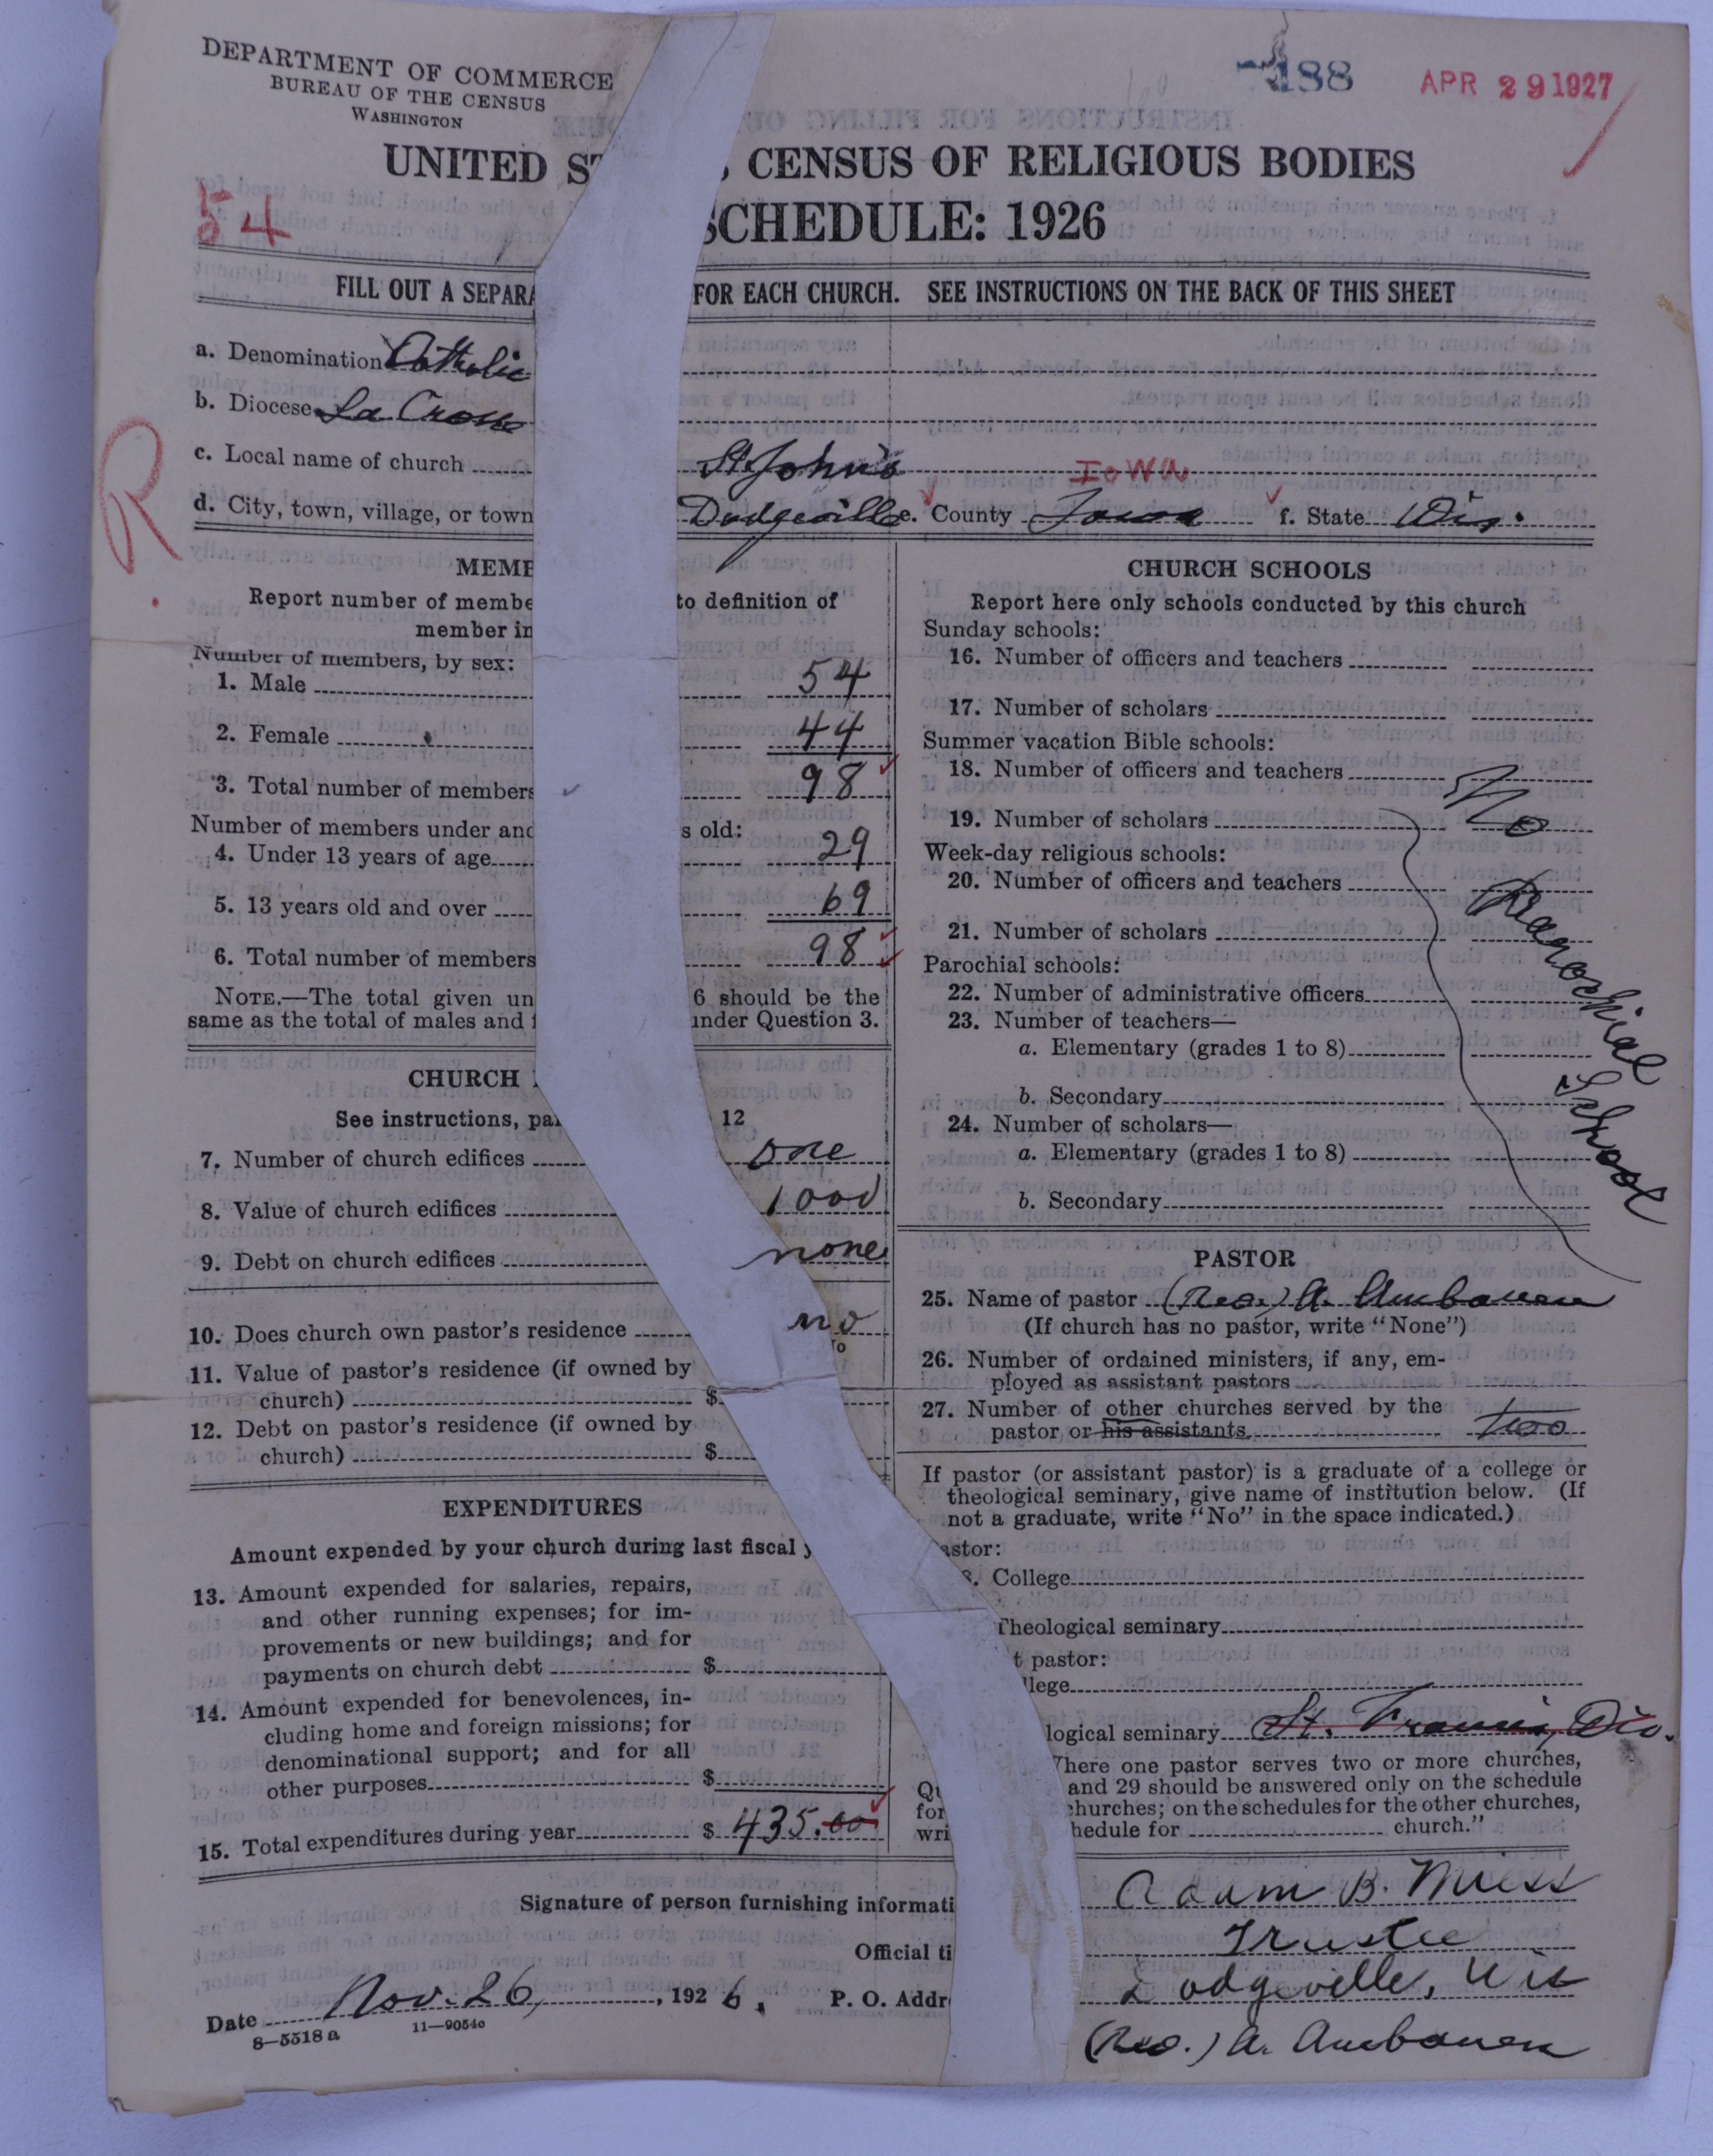 DEPARTMENT OF COMMERCE
BUREAU OF THE CENSUS
WASHINGTON
188
APR 29 1927
UNITED ST CENSUS OF RELIGIOUS BODIES
54
SCHEDULE: 1926
FILL OUT A SEPARA FOR EACH CHURCH. SEE INSTRUCTIONS ON THE BACK OF THIS SHEET
R
a. Denomination Catholic
b. Diocese La Crosse
c. Local name of church St. John's
Iowa
d. City, town, village, or town Dodgeville e. County Iowa f. State Wis.
MEMB
Report number of membe to definition of
member in
Number of members, by sex:
1. Male 54
2. Female 44
3. Total number of members 98
Number of members under and s old:
4. Under 13 years of age 29
5. 13 years old and over 69
6. Total number of members 98
NOTE.—The total given un 6 should be the
same as the total of males and f under Question 3.
CHURCH
See instructions, pa 12
7. Number of church edifices one
8. Value of church edifices 1000
9. Debt on church edifices none
10. Does church own pastor's residence no
11. Value of pastor's residence (if owned by
church) $
12. Debt on pastor's residence (if owned by
church) $
EXPENDITURES
Amount expended by your church during last fiscal y
13. Amount expended for salaries, repairs,
and other running expenses; for im-
provements or new buildings; and for
payments on church debt $
14. Amount expended for benevolences, in-
cluding home and foreign missions; for
denominational support; and for all
other purposes $
15. Total expenditures during year $ 435.00
CHURCH SCHOOLS
Report here only schools conducted by this church
Sunday schools:
16. Number of officers and teachers
17. Number of scholars
Summer vacation Bible schools:
18. Number of officers and teachers
19. Number of scholars
Week-day religious schools:
20. Number of officers and teachers
21. Number of scholars
Parochial schools:
22. Number of administrative officers
23. Number of teachers—
a. Elementary (grades 1 to 8)
b. Secondary
24. Number of scholars—
a. Elementary (grades 1 to 8)
b. Secondary
No
Parochial
School
PASTOR
25. Name of pastor (Rev.) A.
(If church has no pastor, write "None")
26. Number of ordained ministers, if any, em-
ployed as assistant pastors
27. Number of other churches served by the
pastor or his assistants two
If pastor (or assistant pastor) is a graduate of a college or
theological seminary, give name of institution below. (If
not a graduate, write "No" in the space indicated.)
astor:
8. College
Theological seminary
t pastor:
llege
logical seminary St. Francis, Dio.
here one pastor serves two or more churches,
Qu and 29 should be answered only on the schedule
for churches; on the schedules for the other churches,
wri hedule for church."
Signature of person furnishing informati Adam B. Miess
Official ti Trustee
Date Nov. 26, 1926. P. O. Addr Dodgeville, Wis
8—5518 a 11—9054o
(Rev.) A.